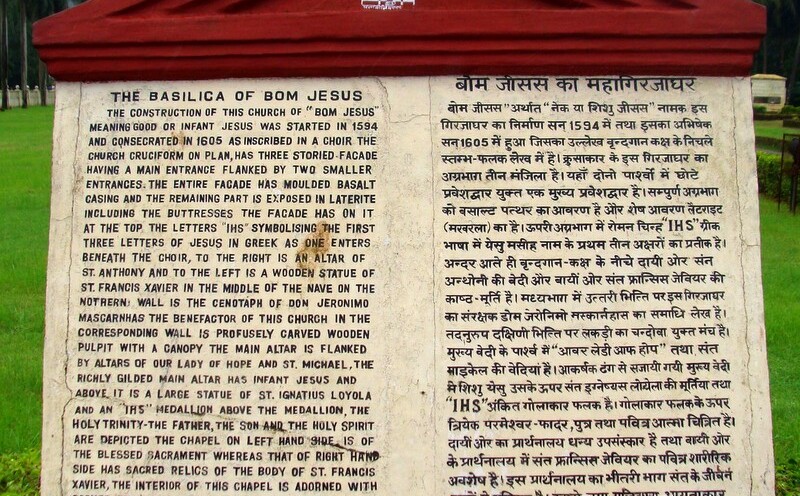 THE BASILICA OF BOM JESUS
THE CONSTRUCTION OF THIS CHURCH OF "BOM JESUS"
MEANING GOOD OR INFANT JESUS WAS STARTED IN 1594
AND CONSECRATED IN 1605 AS INSCRIBED IN A CHOIR THE
CHURCH CRUCIFORM ON PLAN, HAS THREE STORIED FACADE
HAVING A MAIN ENTRANCE FLANKED BY TWO SMALLER
ENTRANCES. THE ENTIRE FACADE HAS MOULDED BASALT
CASING AND THE REMAINING PART IS EXPOSED IN LATERITE
INCLUDING THE BUTTRESSES THE FACADE HAS ON IT
AT THE TOP THE LETTERS "IHS" SYMBOLISING THE FIRST
THREE LETTERS OF JESUS IN GREEK AS ONE ENTERS
BENEATH THE CHOIR, TO THE RIGHT IS AN ALTAR OF
ST. ANTHONY AND TO THE LEFT IS A WOODEN STATUE OF
ST. FRANCIS XAVIER IN THE MIDDLE OF THE NAVE ON THE
NOTHERN WALL IS THE CENOTAPH OF DON JERONIMO
MASCARNHAS THE BENEFACTOR OF THIS CHURCH IN THE
CORRESPONDING WALL IS PROFUSELY CARVED WOODEN
PULPIT WITH A CANOPY THE MAIN ALTAR IS FLANKED
BY ALTARS OF OUR LADY OF HOPE AND ST. MICHAEL, THE
RICHLY GILDED MAIN ALTAR HAS INFANT JESUS AND
ABOVE IT IS A LARGE STATUE OF ST. IGNATIUS LOYOLA
AND AN "IHS" MEDALLION ABOVE THE MEDALLION, THE
HOLY TRINITY-THE FATHER, THE SON AND THE HOLY SPIRIT
ARE DEPICTED THE CHAPEL ON LEFT HAND SIDE, IS OF
THE BLESSED SACRAMENT WHEREAS THAT OF RIGHT HAND
SIDE HAS SACRED RELICS OF THE BODY OF ST. FRANCIS
XAVIER, THE INTERIOR OF THIS CHAPEL IS ADORNED WITH
बौम जीसस का महागिरजाघर
बोम जीसस" अर्थात "नेक या शिशु जीसस" नामक इस
गिरजाघर का निर्माण सन 1594 में तथा इसका अभिषेक
सन 1605 में हुआ जिसका उल्लेख बृन्दगान कक्ष के निचले
स्तम्भ-फलक लेख में है। क्रुसाकार के इस गिरजाघर का
अग्रभाग तीन मंजिला है। यहाँ दोनो पार्श्वो में छोटे
प्रवेशद्वार युक्त एक मुख्य प्रवेशद्वार है। सम्पुर्ण अग्रभाग
की बसाल्ट पत्थर का आवरण है और शेष आवरण लैटराइट
(मखरला) का है। ऊपरी अग्रभाग में रोमन चिन्ह "IHS" ग्रीक
भाषा में येसु मसीह नाम के प्रथम तीन अक्षरों का प्रतीक है।
अन्दर आते ही बृन्दगान-कक्ष के नीचे दायी ओर संत
अन्थोनी की बेदी और बायीं ओर संत फ्रान्सिस जेवियर की
काष्ठ-मूर्ति है। मध्यभाग में उत्तरी भित्ति पर इस गिरजाघर
का संरक्षक डोम जेरोनिमो मस्कार्नहास का समाधि लेख है।
तदनुरुप दक्षिणी भित्ति पर लकड़ी का चन्दोवा युक्त मंच है।
मुख्य वेदी के पार्श्व में "आवर लेडी आफ होप" तथा संत
माइकेल की वेदिया है। आकर्षक ढंग से सजायी गयी मुख्य वेदी
में शिशु येसु उसके ऊपर संत इग्नेष्यस लोयेला की मूर्तिया तथा
"IHS" अंकित गोलाकार फलक है। गोलाकार फलक के ऊपर
त्रियेक परमेश्वर-फादर, पुत्र तथा पवित्र आत्मा चित्रित है।
दायीं ओर का प्रार्थनालय धन्य उपसंस्कार है तथा बायीं ओर
के प्रार्थनालय में संत फ्रान्सिस जेवियर का पवित्र शारीरिक
अवशेष है। इस प्रार्थनालय का भीतरी भाग संत के जीवन